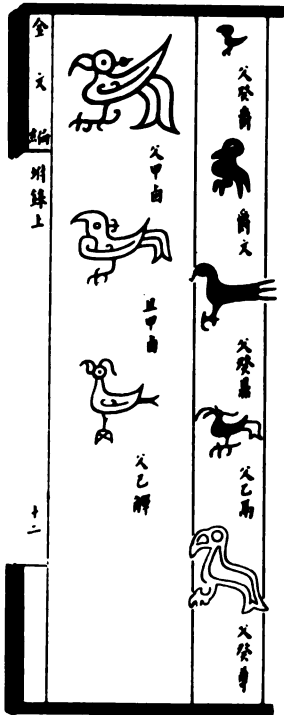 父癸爵
爵文
父癸鼎
父
父癸尊
父甲卣
且甲卣
父己觶
金文編
附錄上
十二